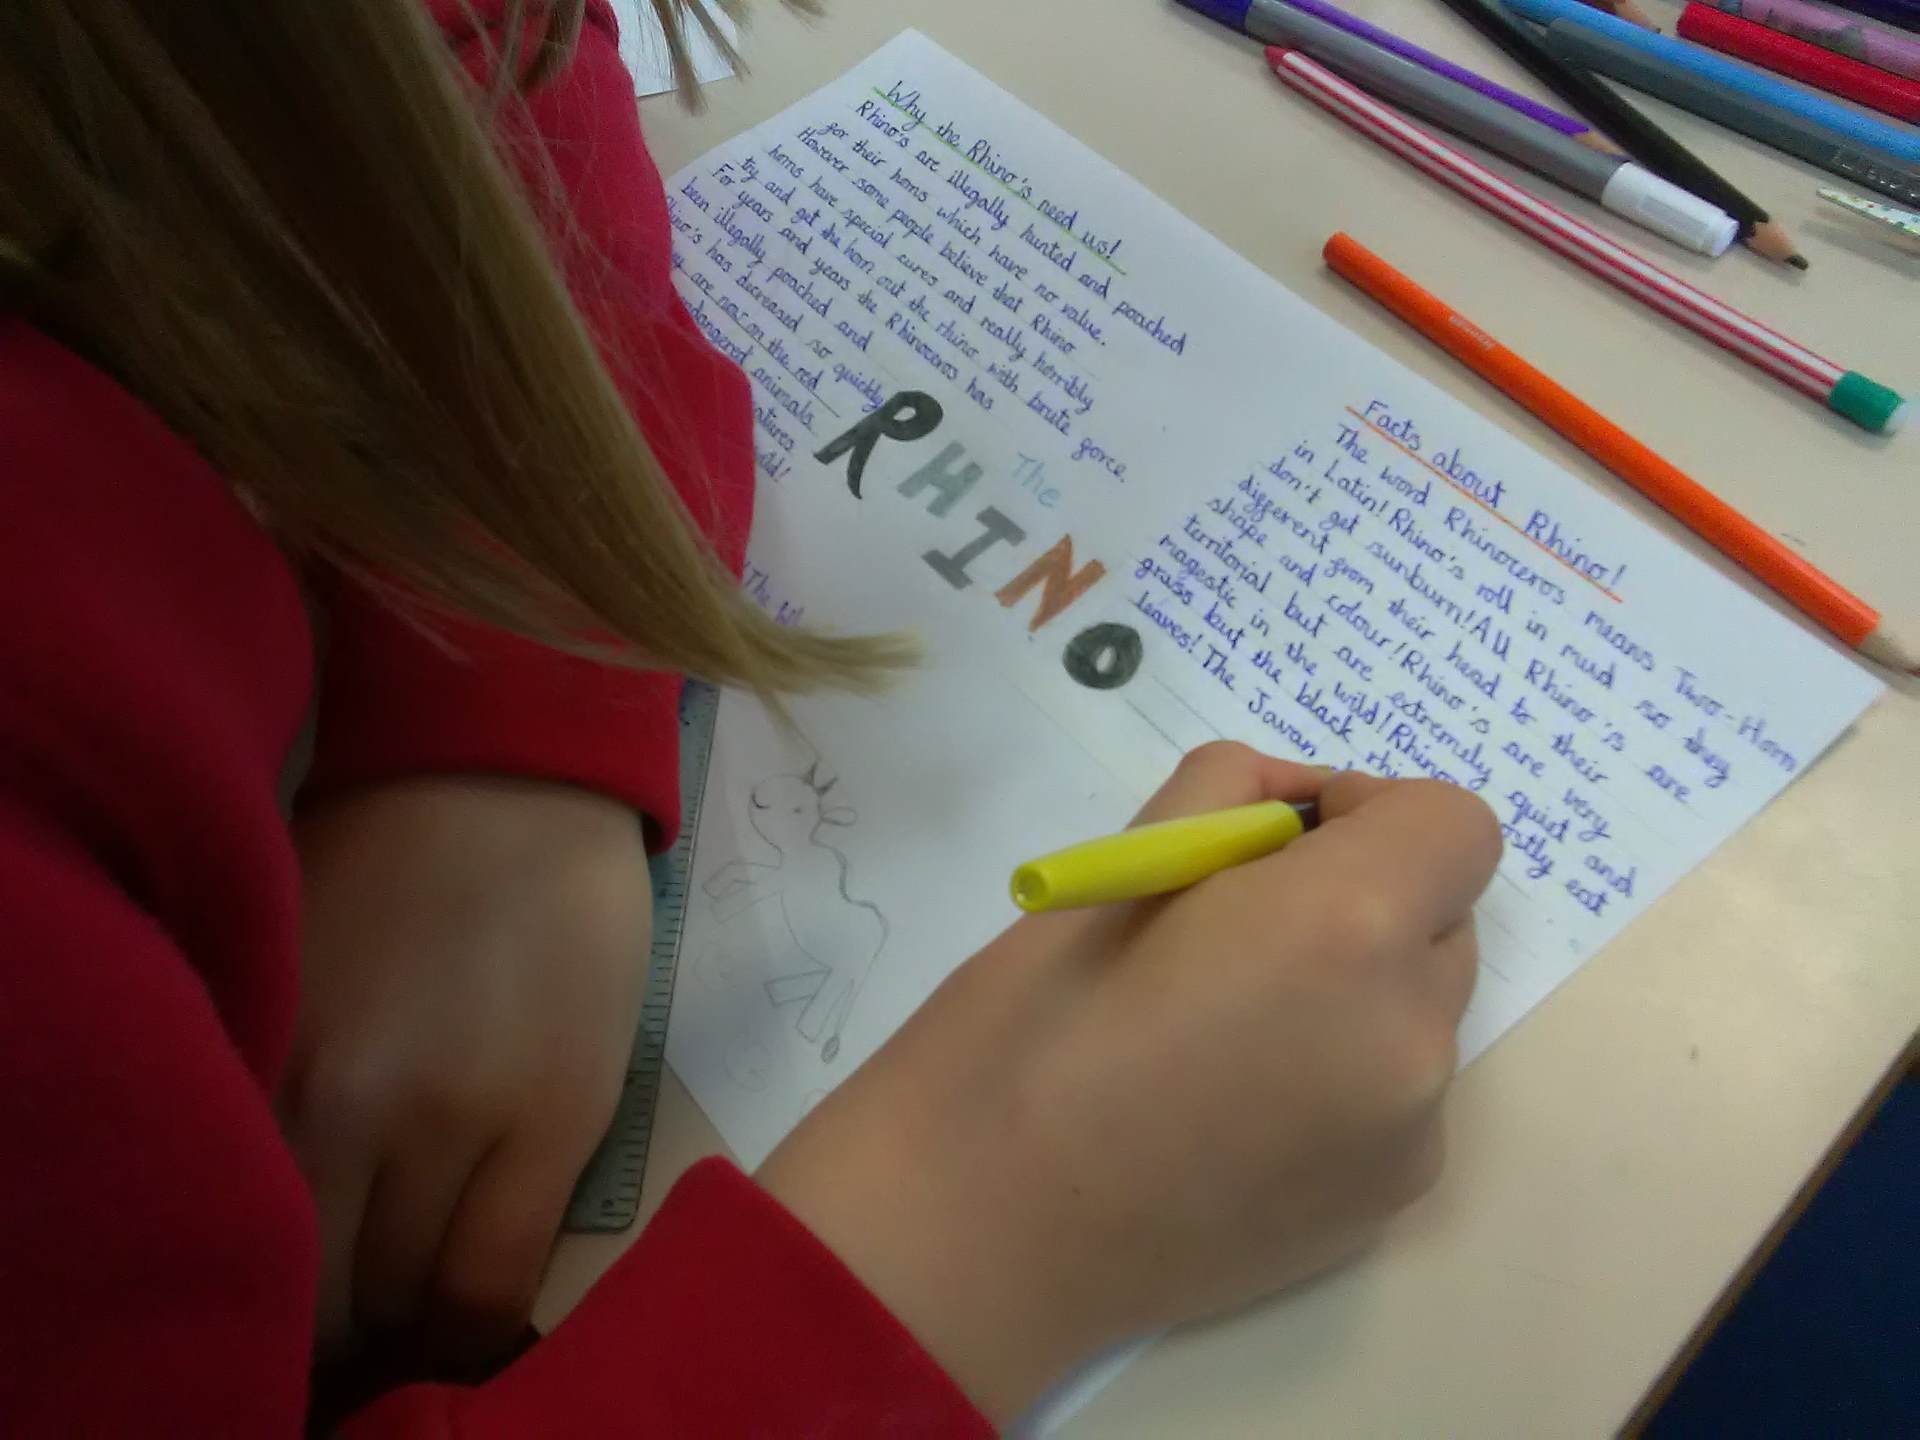 Why the Rhino's need us!
Rhino's are illegally hunted and poached
for their horns which have no value.
However some people believe that Rhino
horns have special cures and really horribly
try and get the horn out the rhino with brute force.
For years and years the Rhinoceros has
been illegally poached and
has decreased so quickly
are now on the red
animals
The
RHINO
Facts about Rhino!
The word Rhinoceros means Two-Horn
in Latin! Rhino's roll in mud so they
don't get sunburn! All Rhino's are
different from their head to their
shape and colour! Rhino's are very
territorial but are extremely quiet and
magestic in the wild! Rhino's mostly eat
grass but the black
leaves! The Javan